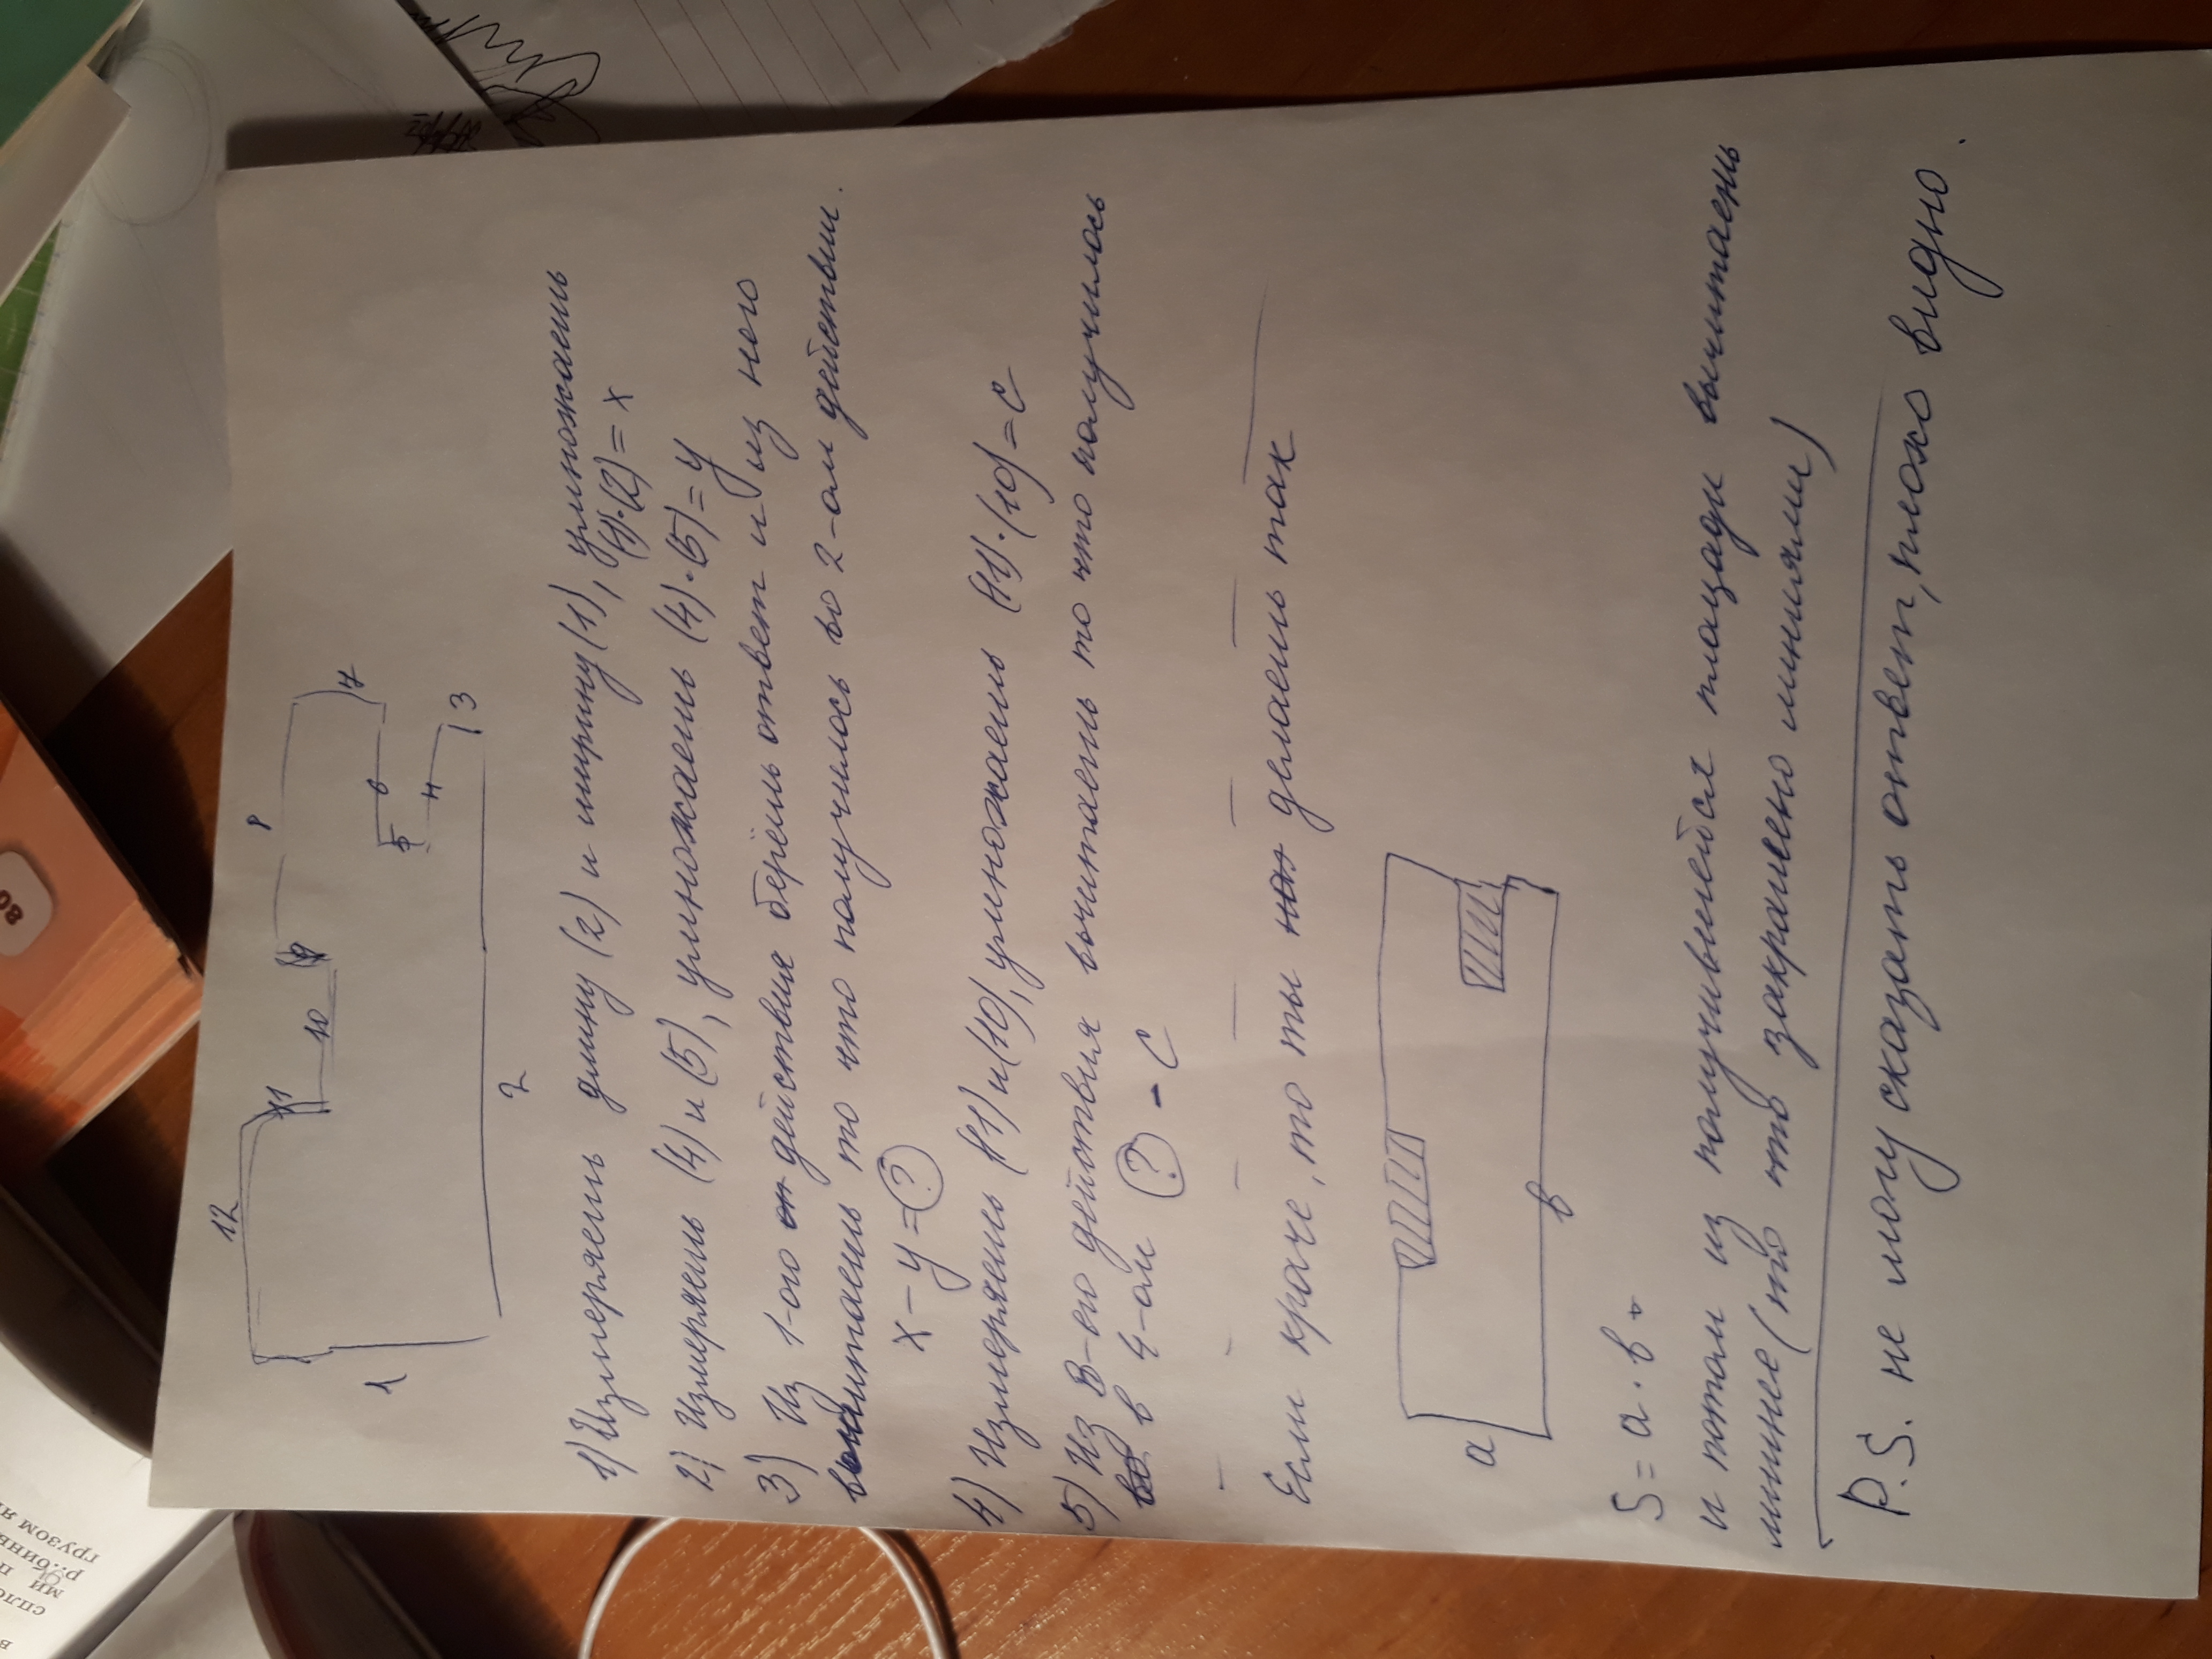 12
8
1
11
10
9
7
5
6
4
3
2
1) Измеряешь длину (2) и ширину (1), умножаешь
(1)·(2)=x
2) Измеряешь (4) и (5), умножаешь (4)·(5)=y
3) Из 1-ого действия берёшь ответ и из него
вычитаешь то что получилось во 2-ом действии.
x-y=?
4) Измеряешь (11) и (10), умножаешь (11)·(10)=c
5) Из 3-его действия вычитаешь то что получилось
в 4-ом ? - c
Если краче, то ты делаешь так
a
в
S=a·в.
и потом из получившейся площади вычитаешь
лишнее (то что закрашено линиями)
P.S. не могу сказать ответ, плохо видно.
80
спло
ми п
р:бины
грузом яг